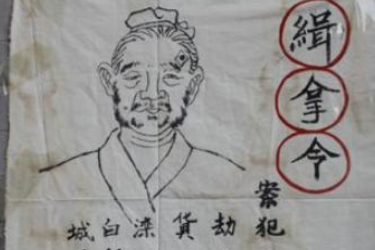 緝拿令
案犯
劫
貨
滦
白
城